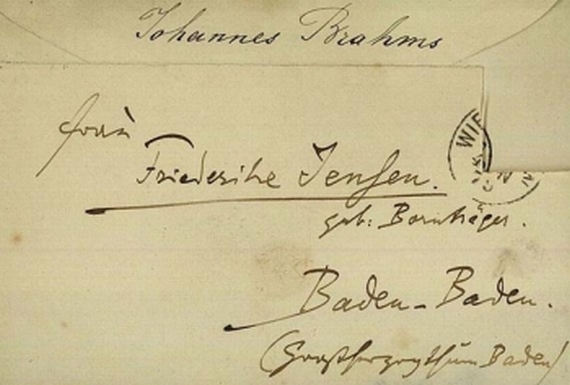 Johannes Brahms
Frau
Friederike Jensen.
geb: Bornträger.
Baden-Baden.
(Großherzogthum Baden)
WIE